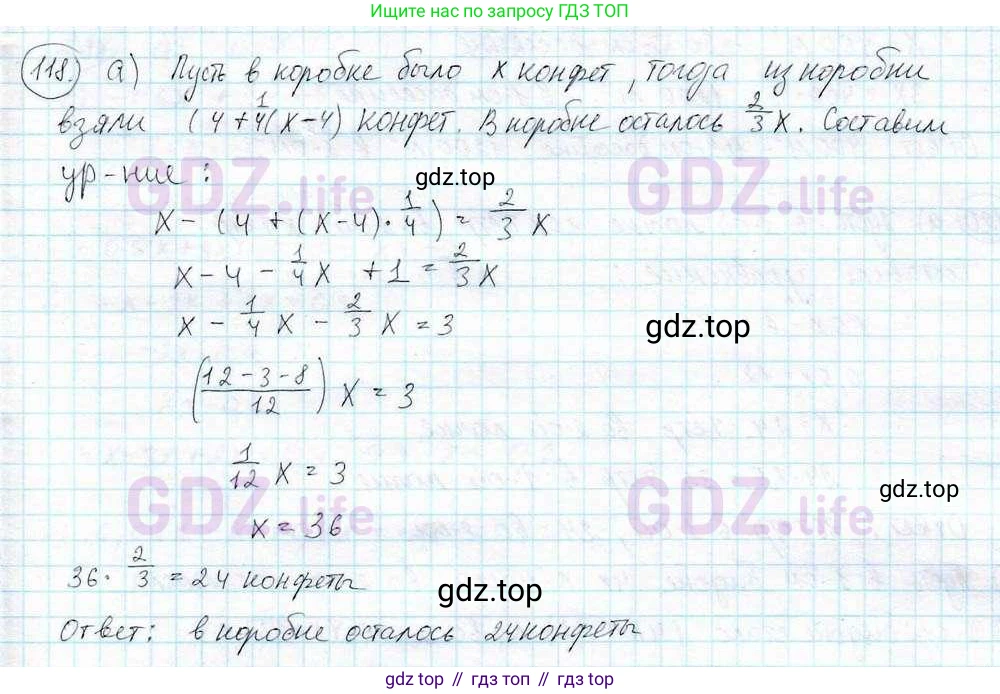 Ищите нас по запросу ГДЗ ТОП
118. а) Пусть в коробке было x конфет, тогда из коробки
взяли (4 + 1/4(x-4) конфет. В коробке осталось 2/3 x. Составим
ур-ние:
gdz.top
x - (4 + (x-4) · 1/4) = 2/3 x
x - 4 - 1/4 x + 1 = 2/3 x
x - 1/4 x - 2/3 x = 3
gdz.top
((12-3-8)/12) x = 3
1/12 x = 3
gdz.top
x = 36
36 · 2/3 = 24 конфеты
gdz.top
Ответ: в коробке осталось 24 конфеты
GDZ.life
GDZ.life
GDZ.life
GDZ.life
gdz.top // гдз топ // gdz.top